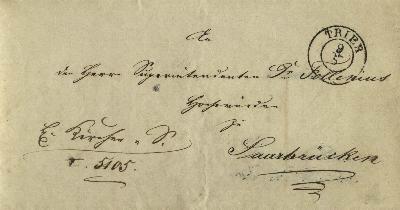 An
TRIER
9
den Herrn Superintendenten Dr.
Hochwürden
zu
E. Kirchen S.
5105.
Saarbrücken